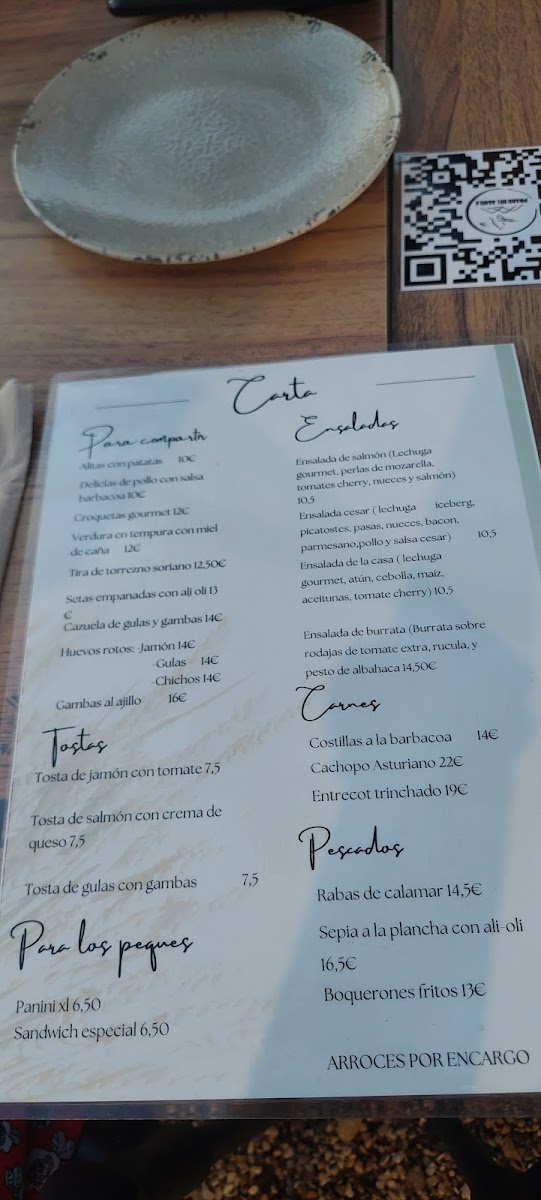 Carta
Para compartir
Alitas con patatas 10€
Delicias de pollo con salsa
barbacoa 10€
Croquetas gourmet 12€
Verdura en tempura con miel
de caña 12€
Tira de torrezno soriano 12,50€
Setas empanadas con ali oli 13
€
Cazuela de gulas y gambas 14€
Huevos rotos: -Jamón 14€
-Gulas 14€
-Chichos 14€
Gambas al ajillo 16€
Tostas
Tosta de jamón con tomate 7,5
Tosta de salmón con crema de
queso 7,5
Tosta de gulas con gambas 7,5
Para los peques
Panini xl 6,50
Sandwich especial 6,50
Ensaladas
Ensalada de salmón (Lechuga
gourmet, perlas de mozarella,
tomates cherry, nueces y salmón)
10,5
Ensalada cesar ( lechuga iceberg,
picatostes, pasas, nueces, bacon,
parmesano,pollo y salsa cesar) 10,5
Ensalada de la casa ( lechuga
gourmet, atún, cebolla, maiz,
aceitunas, tomate cherry) 10,5
Ensalada de burrata (Burrata sobre
rodajas de tomate extra, rucula, y
pesto de albahaca 14,50€
Carnes
Costillas a la barbacoa 14€
Cachopo Asturiano 22€
Entrecot trinchado 19€
Pescados
Rabas de calamar 14,5€
Sepia a la plancha con ali-oli
16,5€
Boquerones fritos 13€
ARROCES POR ENCARGO